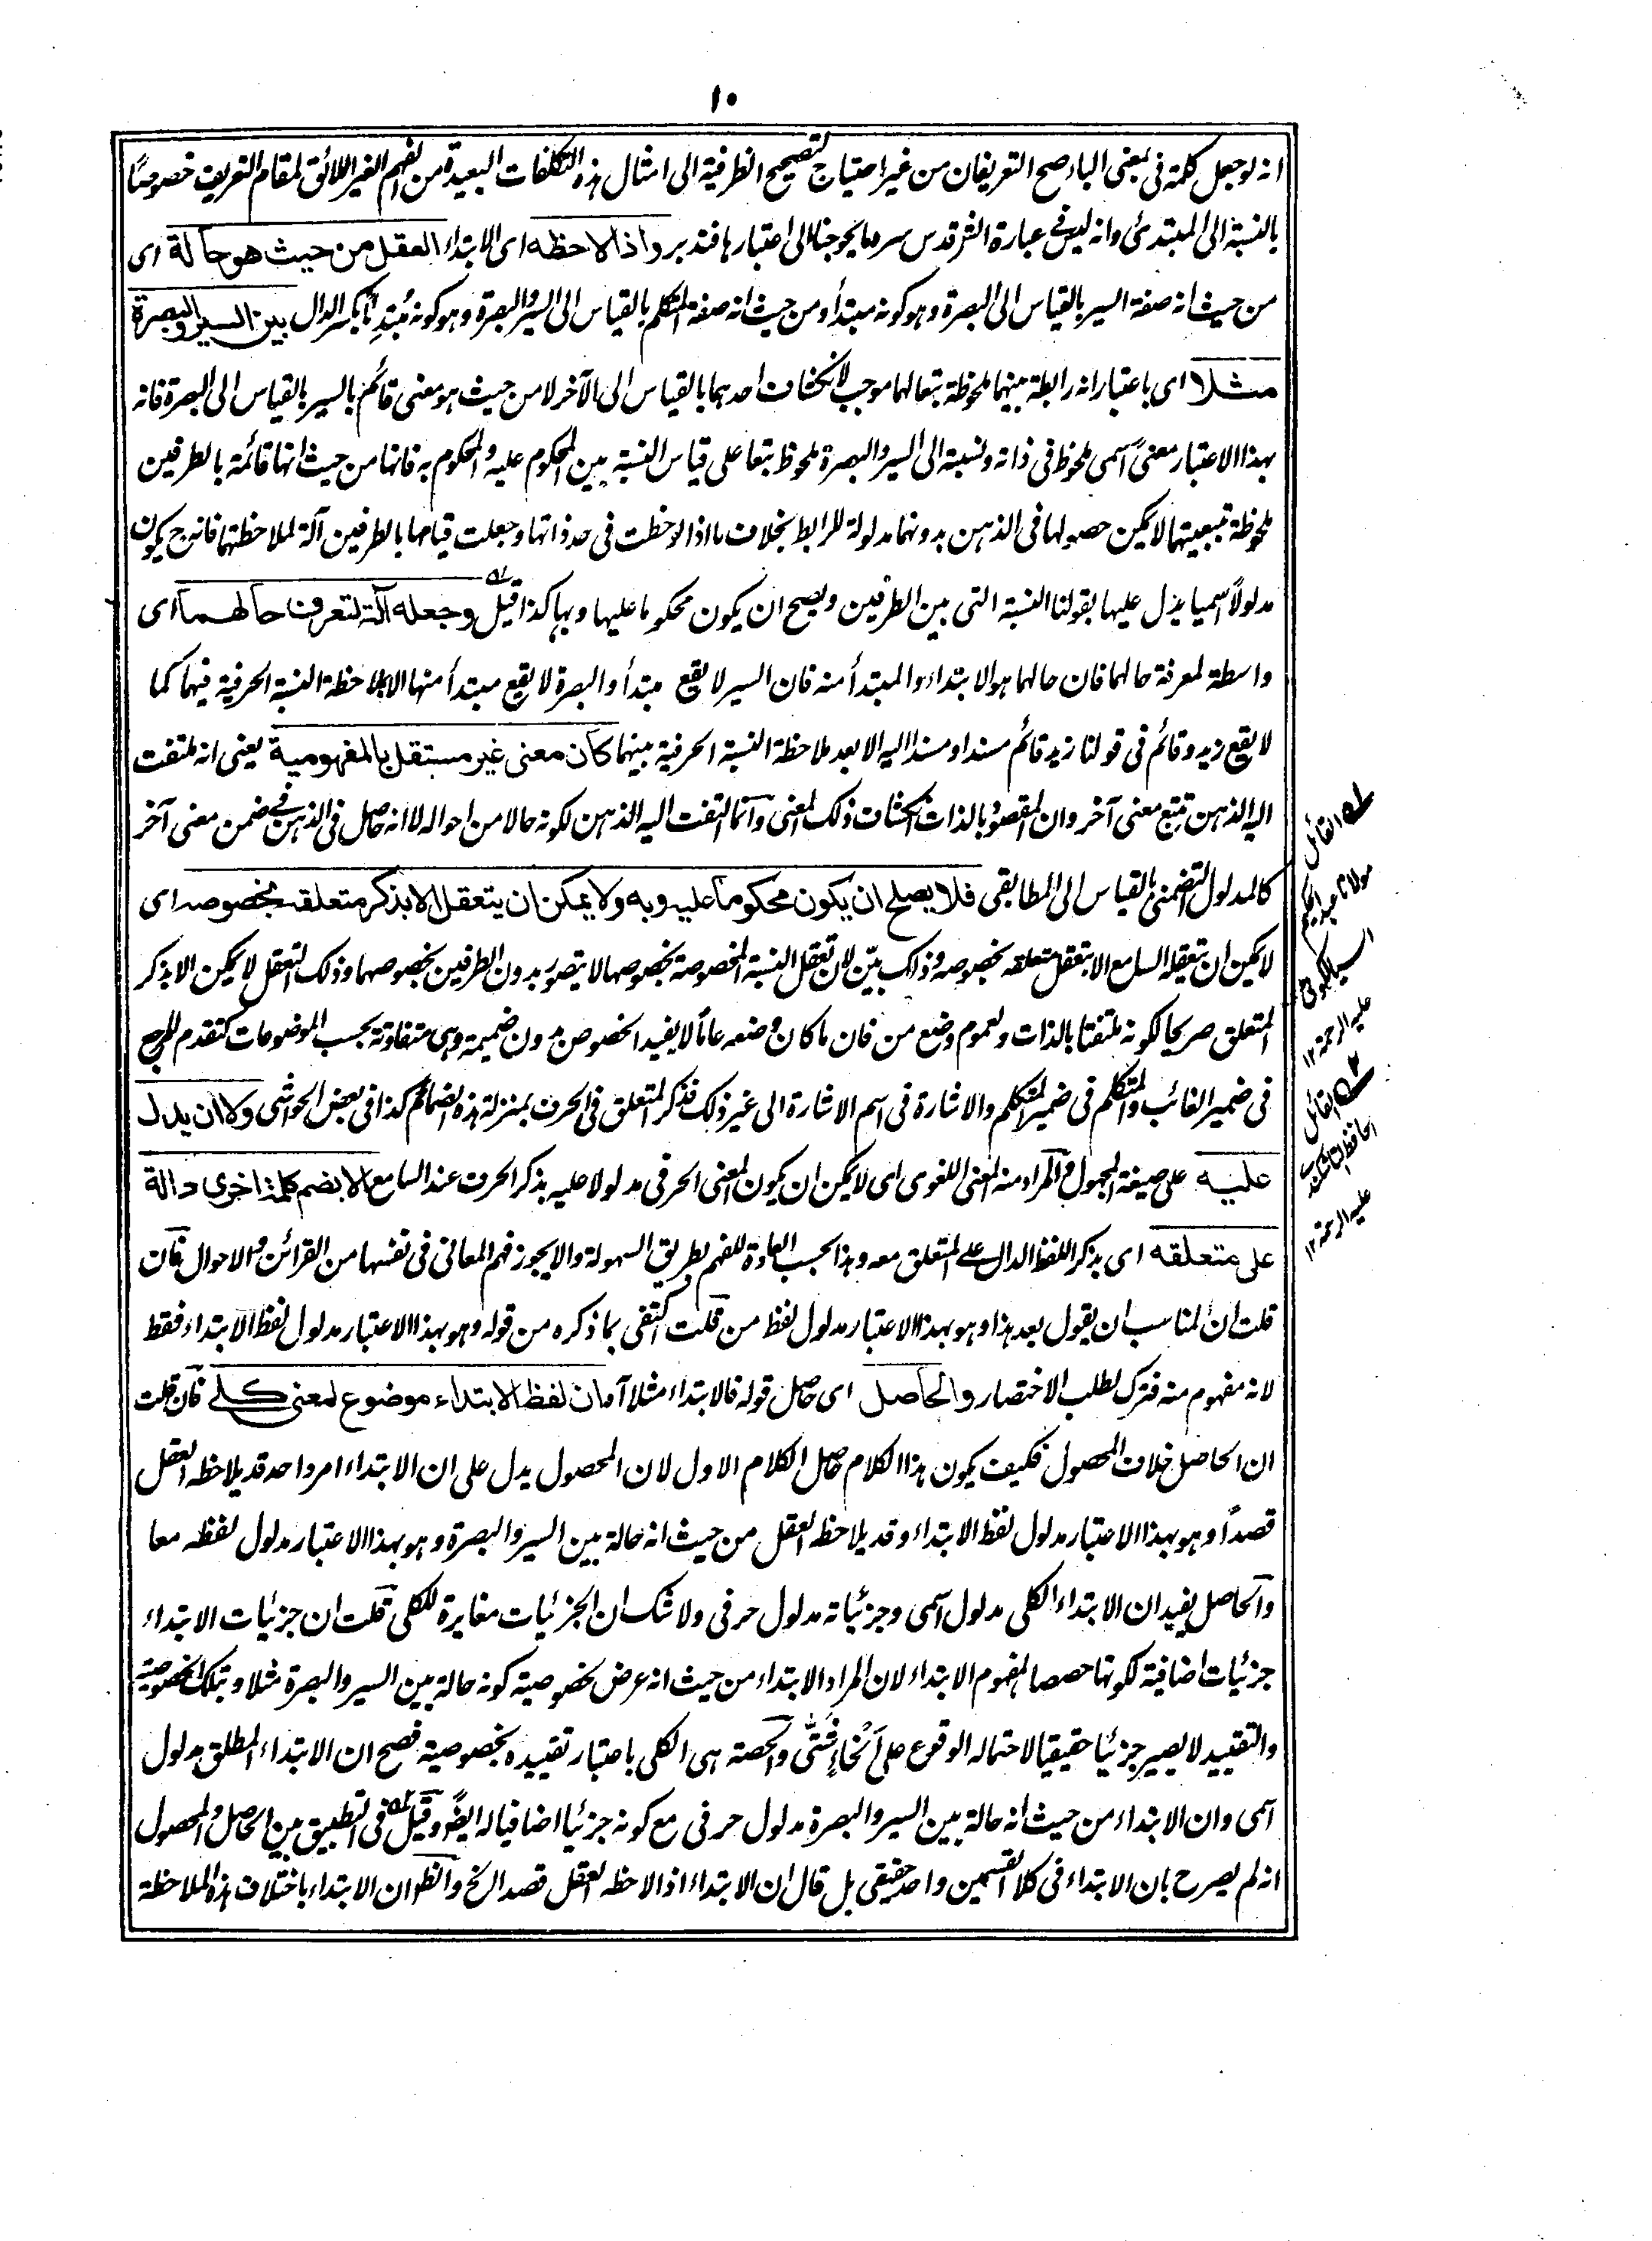 ١٠
انه لو جعل كلمة فى بمعنى الباء صح التعريفان من غير احتياج لتصحيح الظرفية الى امثال هذه التكلفات البعيدة من الفهم الغير اللائق لمقام التعريف خصوصًا
بالنسبة الى المبتدئ وانه ليس فى عبارة الش قدس سره ما يحوجنا الى اعتبارها فتدبر واذا لاحظه اى الابتداء العقل من حيث هو حالة اى
من حيث انه صفة السير بالقياس الى البصرة وهو كونه مبتدأ ومن حيث انه صفة المتكلم بالقياس الى السير والبصرة وهو كونه مُبتدِئًا بكسر الدال بين السير والبصرة
مثلا اى باعتبار انه رابطة بينهما ملحوظة تبعا لهما موجب لانكشاف احدهما بالقياس الى الآخر لا من حيث هو معنى قائم بالسير بالقياس الى البصرة فانه
بهذا الاعتبار معنىً اسمى ملحوظ فى ذاته ونسبته الى السير والبصرة ملحوظ تبعا على قياس النسبة بين المحكوم عليه والمحكوم به فانها من حيث انها قائمة بالطرفين
ملحوظة بتبعيتها لا يمكن حصولها فى الذهن بدونهما مدلولة للرابط بخلاف ما اذا لوحظت فى حد ذاتها وجعلت قيامها بالطرفين آلة لملاحظتهما فانه ح يكون
مدلولًا اسميا يدل عليها بقولنا النسبة التى بين الطرفين ويصح ان يكون محكوما عليها وبها كذا قيل وجعله آلة لتعرف حالهما اى
واسطة لمعرفة حالهما فان حالهما هو الابتداء والمبتدأ منه فان السير لا يقع مبتدأ والبصرة لا يقع مبتدأ منها الا بملاحظة النسبة الحرفية فيهما كما
لا يقع زيد وقائم فى قولنا زيد قائم مسندا ومسندا اليه الا بعد ملاحظة النسبة الحرفية بينهما كان معنى غير مستقل بالمفهومية يعنى انه ملتفت
اليه الذهن بتبع معنى آخر وان المقصود بالذات انكشاف ذلك المعنى وانما التفت اليه الذهن لكونه حالا من احواله لا انه حاصل فى الذهن فى ضمن معنى آخر
كالمدلول التضمنى بالقياس الى المطابقى فلا يصلح ان يكون محكوما عليه وبه ولا يمكن ان يتعقل الا بذكر متعلقه بخصوصه اى
لا يمكن ان يتعقله السامع الا بتعقل متعلقه بخصوصه وذلك بيّن لان تعقل النسبة المخصوصة بخصوصها لا يتصور بدون الطرفين بخصوصهما وذلك التعقل لا يمكن الا بذكر
المتعلق صريحا لكونه ملتفتا بالذات ولعموم وضع من فان ما كان وضعه عامًا لا يفيد الخصوص بدون ضميمة وهى متفاوتة بحسب الموضوعات كتقدم المرجع
فى ضمير الغائب والمتكلم فى ضمير المتكلم والاشارة فى اسم الاشارة الى غير ذلك فذكر المتعلق فى الحرف بمنزلة هذه الضمائم كذا فى بعض الحواشى ولا ان يدل
عليه على صيغة المجهول والمراد منه المعنى اللغوى اى لا يمكن ان يكون المعنى الحرفى مدلولا عليه بذكر الحرف عند السامع الا بضم كلمة اخرى دالة
على متعلقه اى بذكر اللفظ الدال على المتعلق معه وهذا بحسب العادة للفهم بطريق السهولة والا يجوز فهم المعانى فى نفسها من القرائن والاحوال فان
قلت ان المناسب ان يقول بعد هذا وهو بهذا الاعتبار مدلول لفظ من قلت اكتفى بما ذكره من قوله وهو بهذا الاعتبار مدلول لفظ الابتداء فقط
لانه مفهوم منه فترك لطلب الاختصار والحاصل اى حاصل قوله فالابتداء مثلا آه ان لفظ الابتداء موضوع لمعنى كلى فان قلت
ان الحاصل خلاف المحصول فكيف يكون هذا الكلام حاصل الكلام الاول لان المحصول يدل على ان الابتداء امر واحد قد يلاحظه العقل
قصدًا وهو بهذا الاعتبار مدلول لفظ الابتداء وقد يلاحظه العقل من حيث انه حالة بين السير والبصرة وهو بهذا الاعتبار مدلول لفظه معا
والحاصل يفيد ان الابتداء الكلى مدلول اسمى وجزئياته مدلول حرفى ولا شك ان الجزئيات مغايرة للكلى قلت ان جزئيات الابتداء
جزئيات اضافية لكونها حصصا لمفهوم الابتداء لان المراد الابتداء من حيث انه عرض بخصوصية كونه حالة بين السير والبصرة مثلا وبتلك الخصوصية
والتقييد لا يصير جزئيا حقيقيا لاحتماله الوقوع على اَنْحَاءٍ شَتّٰى والحصة هى الكلى باعتبار تقييده بخصوصية فصح ان الابتداء المطلق مدلول
اسمى وان الابتداء من حيث انه حالة بين السير والبصرة مدلول حرفى مع كونه جزئيا اضافيا له ايضًا وقيل فى التطبيق بين الحاصل والمحصول
انه لم يصرح بان الابتداء فى كلا القسمين واحد حقيقى بل قال ان الابتداء اذا لاحظه العقل قصدا الخ والظ ان الابتداء باختلاف هذه الملاحظة
له القائل
مولانا عبد الحكيم
السيالكوتى
عليه الرحمة ١٢
القائل
الحافظ التاشكندى
عليه الرحمة ١٢